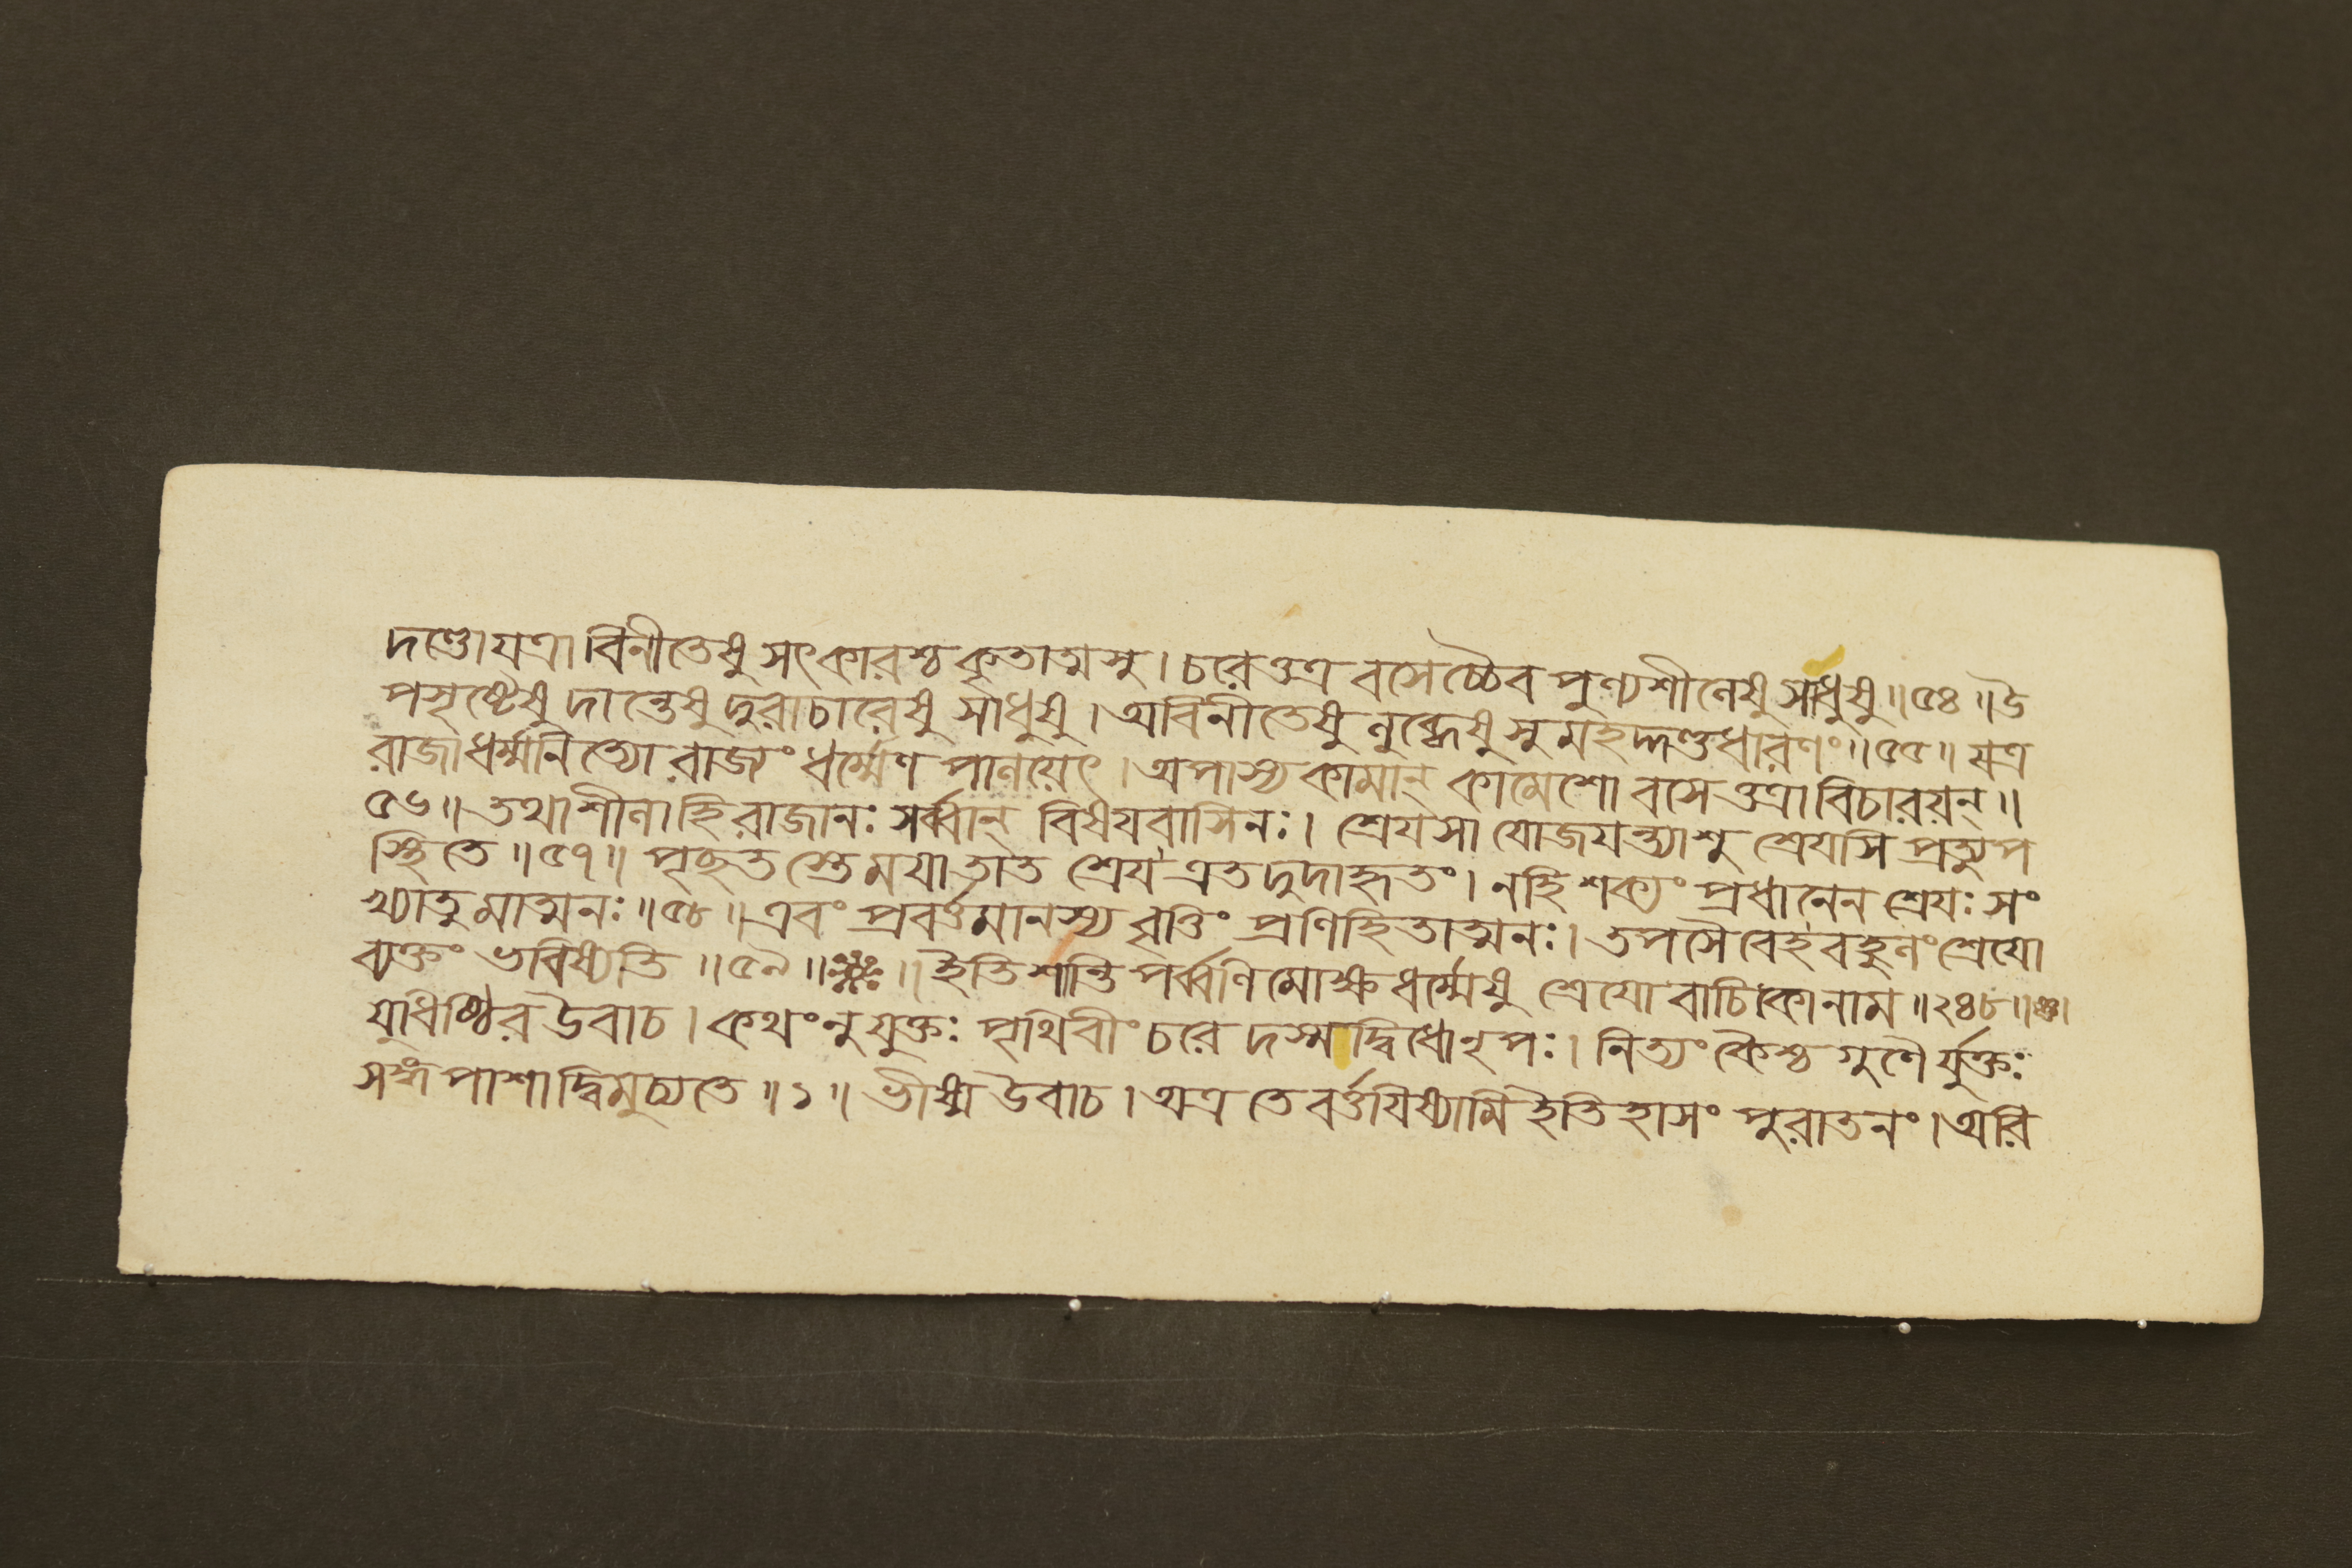 দণ্ডোযত্রাবিনীতেষু সৎকারশ্চ কৃতাত্মসু । চরেত্তত্র বসেচ্চৈব পুণ্যশীলেষু সাধুষু ॥ ৫৪ ॥ উ
পসৃষ্টেষু দান্তেষু দুরাচারেষু সাধুষু । অবিনীতেষু লুব্ধেষু সুমহদ্দণ্ডধারণং ॥ ৫৫ ॥ যত্র
রাজা ধর্ম্মনিত্যো রাজ্যং ধর্ম্মেণ পালয়েৎ । অপাস্য কামান্ কামেশো বসেত্তত্রাবিচারয়ন্ ॥
৫৬ ॥ তথাশীলা হি রাজানঃ সর্ব্বান্ বিষয়বাসিনঃ । শ্রেয়সা যোজয়ন্ত্যাশু শ্রেয়সি প্রত্যুপ
স্থিতে ॥ ৫৭ ॥ পৃছতস্তে ময়া তাত শ্রেয় এতদুদাহৃতং । নহি শক্যং প্রধানেন শ্রেয়ঃ সং
খ্যাতুমাত্মনঃ ॥ ৫৮ ॥ এবং প্রবর্ত্তমানস্য বৃত্তিং প্রণিহিতাত্মনঃ । তপসৈবেহ বহুলং শ্রেয়ো
ব্যক্তং ভবিষ্যতি ॥ ৫৯ ॥ ॥ ইতি শান্তিপর্ব্বণি মোক্ষধর্ম্মেষু শ্রেয়োবাচিকোনাম ॥ ২৪৮ ॥
যুধিষ্ঠির উবাচ । কথং নু যুক্তঃ পৃথিবীং চরেদস্মদ্বিধো নৃপঃ । নিত্যং কৈশ্চ গুণৈর্যুক্তঃ
সঙ্গপাশাদ্বিমুচ্যতে ॥ ১ ॥ ভীষ্ম উবাচ । অত্র তে বর্ত্তয়িষ্যামি ইতিহাসং পুরাতনং । অরি